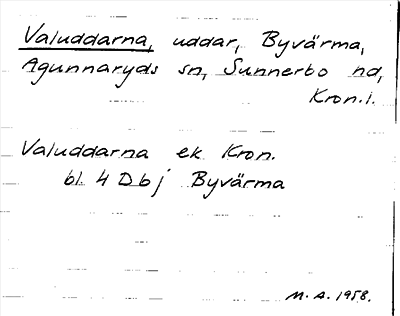 Valuddarna, uddar, Byvärma,
Agunnaryds sn, Sunnerbo hd,
Kron.l.
Valuddarna ek Kron.
bl. 4 D b j Byvärma
M. A. 1958.